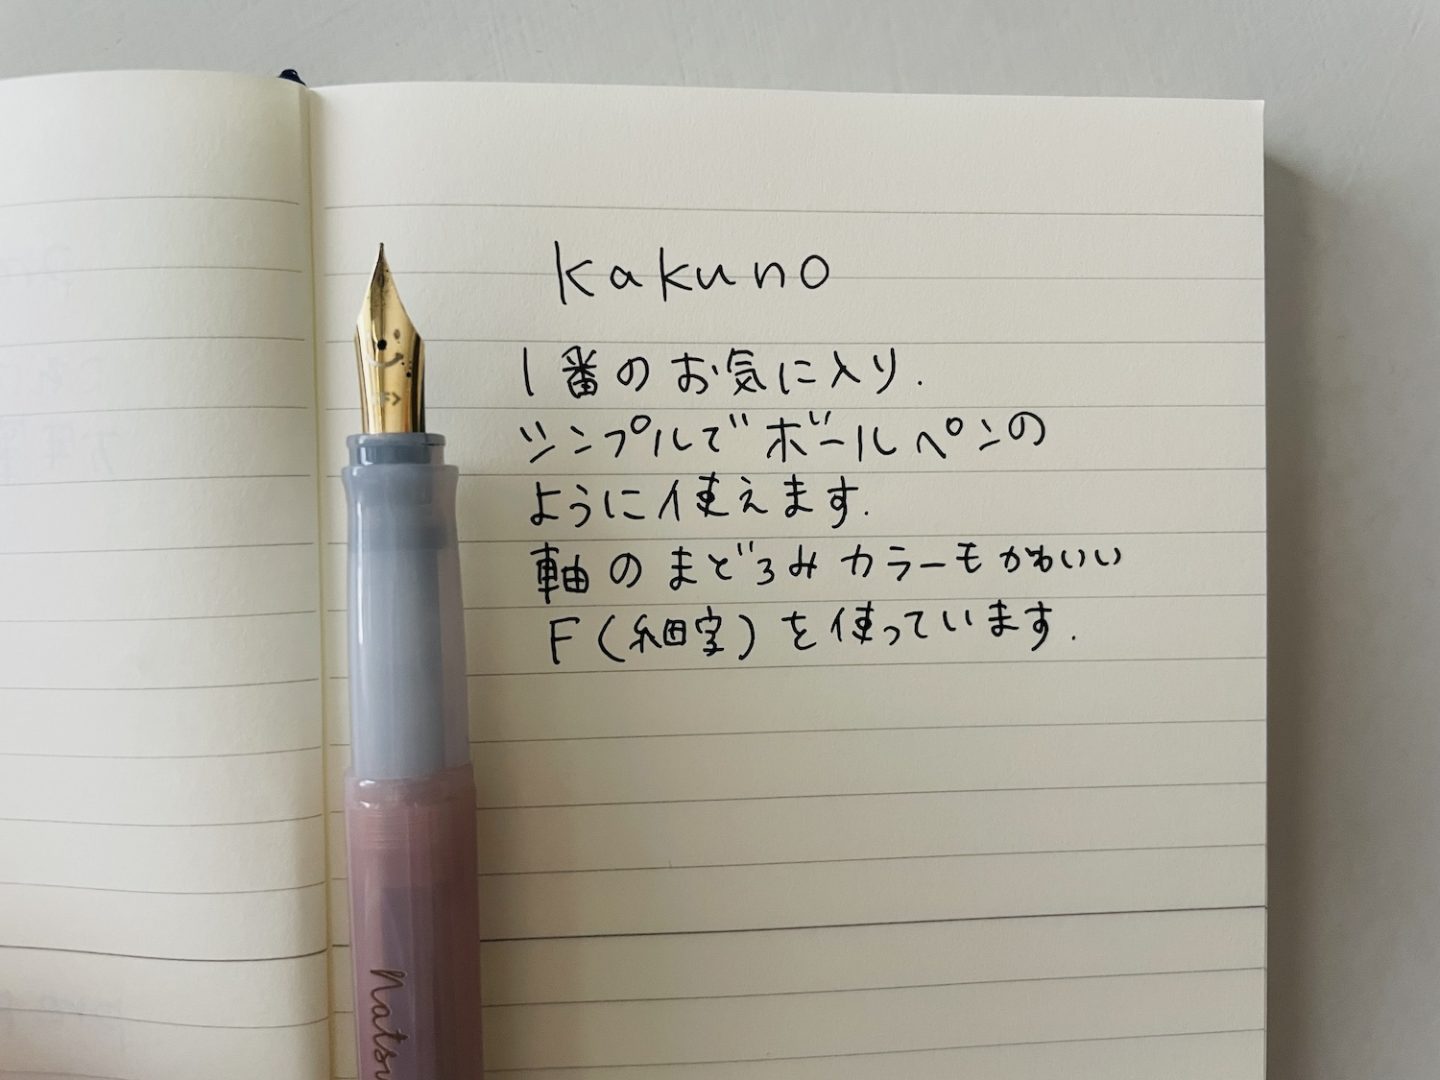 kakuno
1番のお気に入り.
シンプルでボールペンの
ように使えます.
軸のまどろみカラーもかわいい
F(細字)を使っています.
F>
Natsu